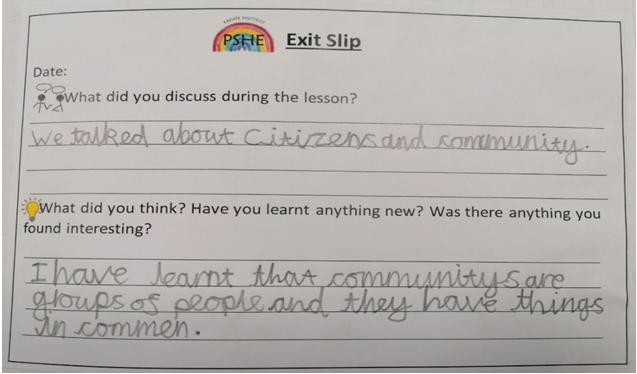 PSHE Exit Slip
Date:
What did you discuss during the lesson?
We talked about Citizens and community.
What did you think? Have you learnt anything new? Was there anything you
found interesting?
I have learnt that communitys are
groups of people and they have things
in commen.